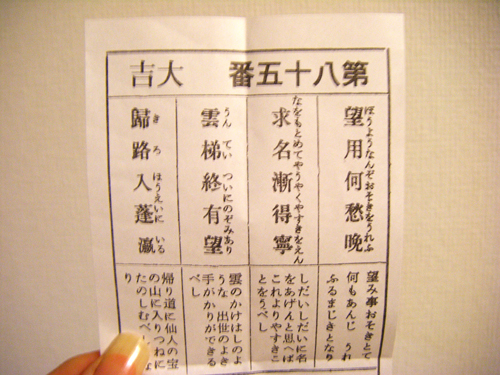 第八十五番 大吉
ぼうようなんぞおそきをうれふ
望用何愁晩
なをもとめてやうやくやすきをえん
求名漸得寧
うんてい ついにのぞみあり
雲梯終有望
きろ ほうえいに いる
歸路入蓬瀛
望み事おそきとて
何もあんじ うれ
ふるまじきとなり
しだいしだいに名
をあげんと思へば
これよりやすきこ
とをうべし
雲のかけはしのよ
うな 出世のよき
手がかりができる
べし
帰り道に仙人の宝
の山に入りつねに
たのしむべし な
り